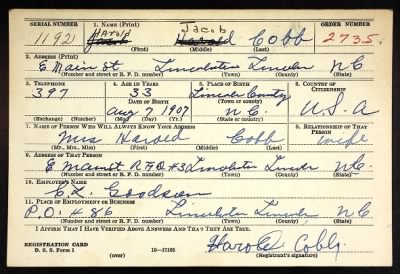 SERIAL NUMBER 1. NAME (Print) ORDER NUMBER
Harold Jacob
1192 Cobb 2735
(First) (Middle) (Last)
2. ADDRESS (Print)
E Main St Lincolnton Lincoln N C
(Number and street or R. F. D. number) (Town) (County) (State)
3. TELEPHONE 4. AGE IN YEARS 5. PLACE OF BIRTH 6. COUNTRY OF CITIZENSHIP
397 33 Lincoln County
DATE OF BIRTH (Town or county)
Aug 7 1907 N.C. U.S.A
(Exchange) (Number) (Mo.) (Day) (Yr.) (State or country)
7. NAME OF PERSON WHO WILL ALWAYS KNOW YOUR ADDRESS 8. RELATIONSHIP OF THAT PERSON
Mrs Harold Cobb wife
(Mr., Mrs., Miss) (First) (Middle) (Last)
9. ADDRESS OF THAT PERSON
E Main St R F D #3 Lincolnton Lincoln N.C.
(Number and street or R. F. D. number) (Town) (County) (State)
10. EMPLOYER'S NAME
Goodson
11. PLACE OF EMPLOYMENT OR BUSINESS
P.O. #86 Lincolnton Lincoln N C
(Number and street or R. F. D. number) (Town) (County) (State)
I AFFIRM THAT I HAVE VERIFIED ABOVE ANSWERS AND THAT THEY ARE TRUE.
Harold Cobb
REGISTRATION CARD
D. S. S. Form 1 16—17105 (over) (Registrant's signature)